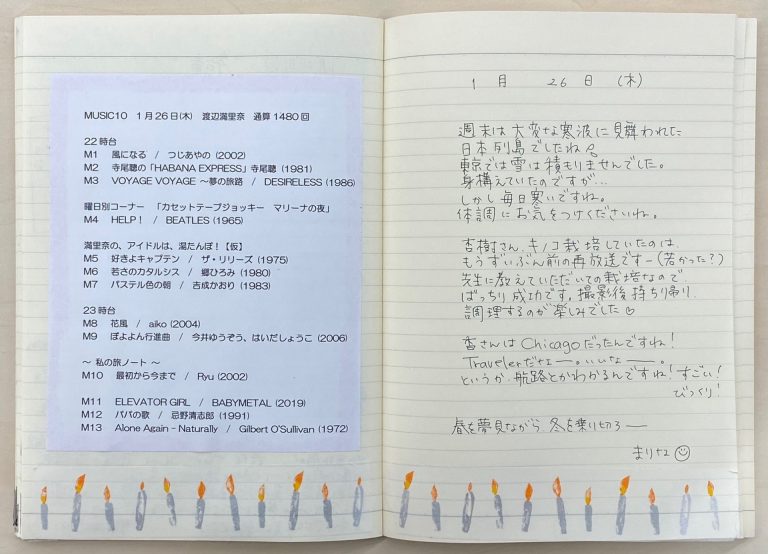 MUSIC10 1月26日(木) 渡辺満里奈 通算1480回
22時台
M1 風になる / つじあやの (2002)
M2 寺尾聰の「HABANA EXPRESS」寺尾聰 (1981)
M3 VOYAGE VOYAGE ～夢の旅路 / DESIRELESS (1986)
曜日別コーナー 「カセットテープジョッキー マリーナの夜」
M4 HELP! / BEATLES (1965)
満里奈の、アイドルは、湯たんぽ!【仮】
M5 好きよキャプテン / ザ・リリーズ (1975)
M6 若さのカタルシス / 郷ひろみ (1980)
M7 パステル色の朝 / 吉成かおり (1983)
23時台
M8 花風 / aiko (2004)
M9 ぼよよん行進曲 / 今井ゆうぞう、はいだしょうこ (2006)
～ 私の旅ノート ～
M10 最初から今まで / Ryu (2002)
M11 ELEVATOR GIRL / BABYMETAL (2019)
M12 パパの歌 / 忌野清志郎 (1991)
M13 Alone Again - Naturally / Gilbert O'Sullivan (1972)
1月 26日 (木)
週末は大変な寒波に見舞われた
日本列島でしたね。
東京では雪は積もりませんでした。
身構えていたのですが…
しかし毎日寒いですね。
体調にお気をつけくださいね。
杏樹さん、キノコ栽培していたのは、
もうずいぶん前の再放送ですー(若かった?)
先生に教えていただいての栽培なので
ばっちり成功です。撮影後持ち帰り、
調理するのが楽しみでした♡
杏さんはChicagoだったんですね!
Travelerだなぁー。いいなぁー。
というか、航路とかわかるんですね!すごい!
びっくり!
春を夢見ながら 冬を乗り切ろー
まりな☺